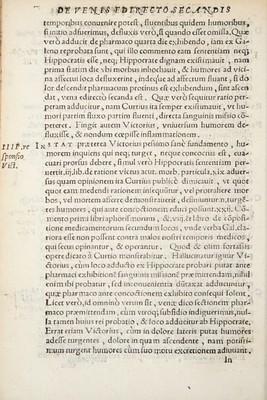 DE VENIS E DIRECTO SECANDIS
temporibus conuenire potest, fluentibus quidem humoribus,
si initio adfuerimus, defluxis verò, si quando esset omissa. Quæ
verò adducit de pharmaco quarta die exhibendo, iam ex Ga
leno reprobata sunt, qui illo commento eam sententiam neq;
Hippocratis esse, neq; Hippocrate dignam existimauit, nam
prima statim die vbi morbus inchoauit, & humores ad vicina
affectui loca defluxerint, indeq́ue ad affectum fluant, si do
lor descendit pharmacum protinus est exhibendum, sint ascen
dat, vena è directo secanda est. Quæ verò sequitur ratio per-
peram adducitur, nam Curtius ita semper existimauit, vt hu-
mori partim fluxo partim fluenti, directa sanguinis missio cō-
peteret. Fingit autem Victorius, vniuersum humorem de-
fluxisse, & nondum cepisse inflammationem.
IIII. re
sponsio
Vict.
INSTAT præterea Victorius pessimo sanè fundamento, hu
morem inquiens qui neq; turget, neque concoctus est, eua-
cuari prorsus debere, si mul verò Hippocratis sententiam per-
uertit, iij. lib. de ratione victus acut. morb. particula. xix. aduer-
sus quam opinionem ita Curtius publicè dimicauit, vt quot
quot eam medendi rationem insequitur, vel probrosè hære
bos, vel mortem afferre demonstrauerit, deinde turgen-
tes humores, qui ante concoctionem educi possunt. xxij. Cō-
mento primi libri aphorismorum, &. viij. & libro de cōposi-
tione medicamentorum secundum locos, vnde verba Gal. cla-
riora esse non possent contra malos nostri temporis medicos,
qui secus opinantur, & operantur. Quod & etiam fortassis
opere dicato à Curtio transferibatur. Hallucinatur igitur Vi
ctorius, cum loco adducto ex Hippocrate probari putat ante
pharmaci exhibitionem sanguinis missionē præmittendam, nihil
enim ibi probatur, sed inconuenientia duntaxat adducuntur,
quæ pharmaco ante concoctionem exhibito consequi solent.
Licet verò id omnino verum sit, venæ dico sectionem phar-
maco præmittendam, cum vtroq; subsidio indiguerimus, nul-
la tamen huius rei probatio, & loco adducitur ab Hippocrate,
Errat etiam Victorius, cum in dolore lateris putat humores
adesse turgentes, dolore in quam ascendente, nam potissi-
mum turgent humores cum suo motu excretionem adiuuant,
In